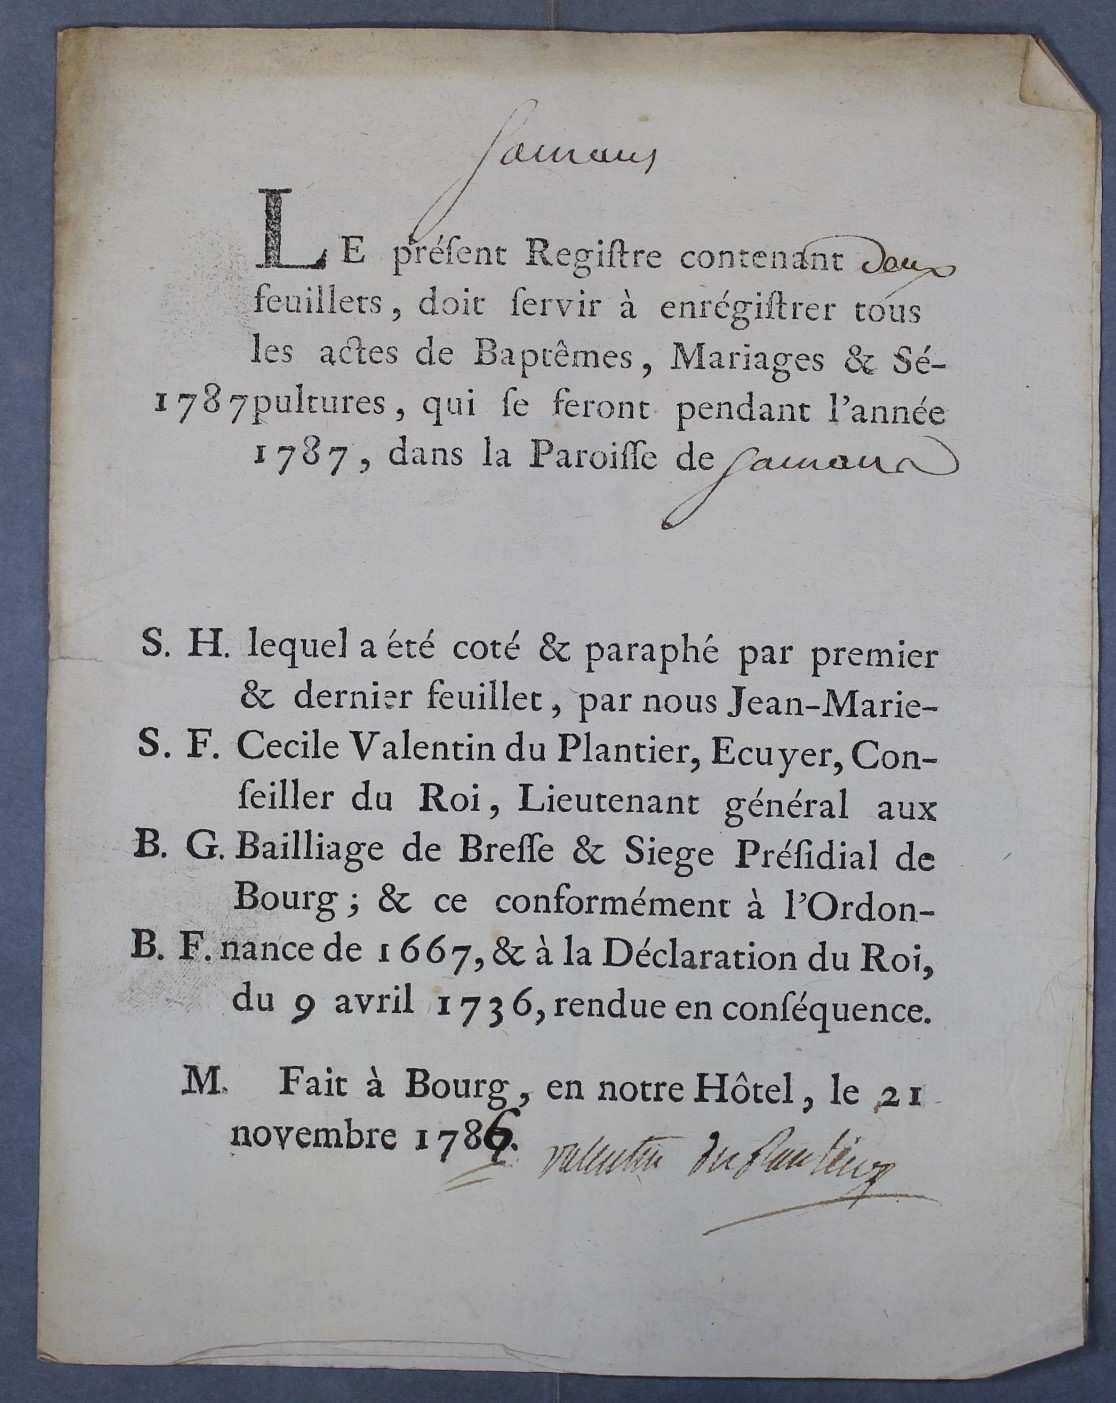 Samans
LE préſent Regiſtre contenant deux
feuillets, doit ſervir à enrégiſtrer tous
les actes de Baptêmes, Mariages & Sé-
1787 pultures, qui ſe feront pendant l'année
1787, dans la Paroiſſe de Samans
S. H. lequel a été coté & paraphé par premier
& dernier feuillet, par nous Jean-Marie-
S. F. Cecile Valentin du Plantier, Ecuyer, Con-
ſeiller du Roi, Lieutenant général aux
B. G. Bailliage de Breſſe & Siege Préſidial de
Bourg; & ce conformément à l'Ordon-
B. F. nance de 1667, & à la Déclaration du Roi,
du 9 avril 1736, rendue en conſéquence.
M. Fait à Bourg, en notre Hôtel, le 21
novembre 1786. Valentin du Plantier